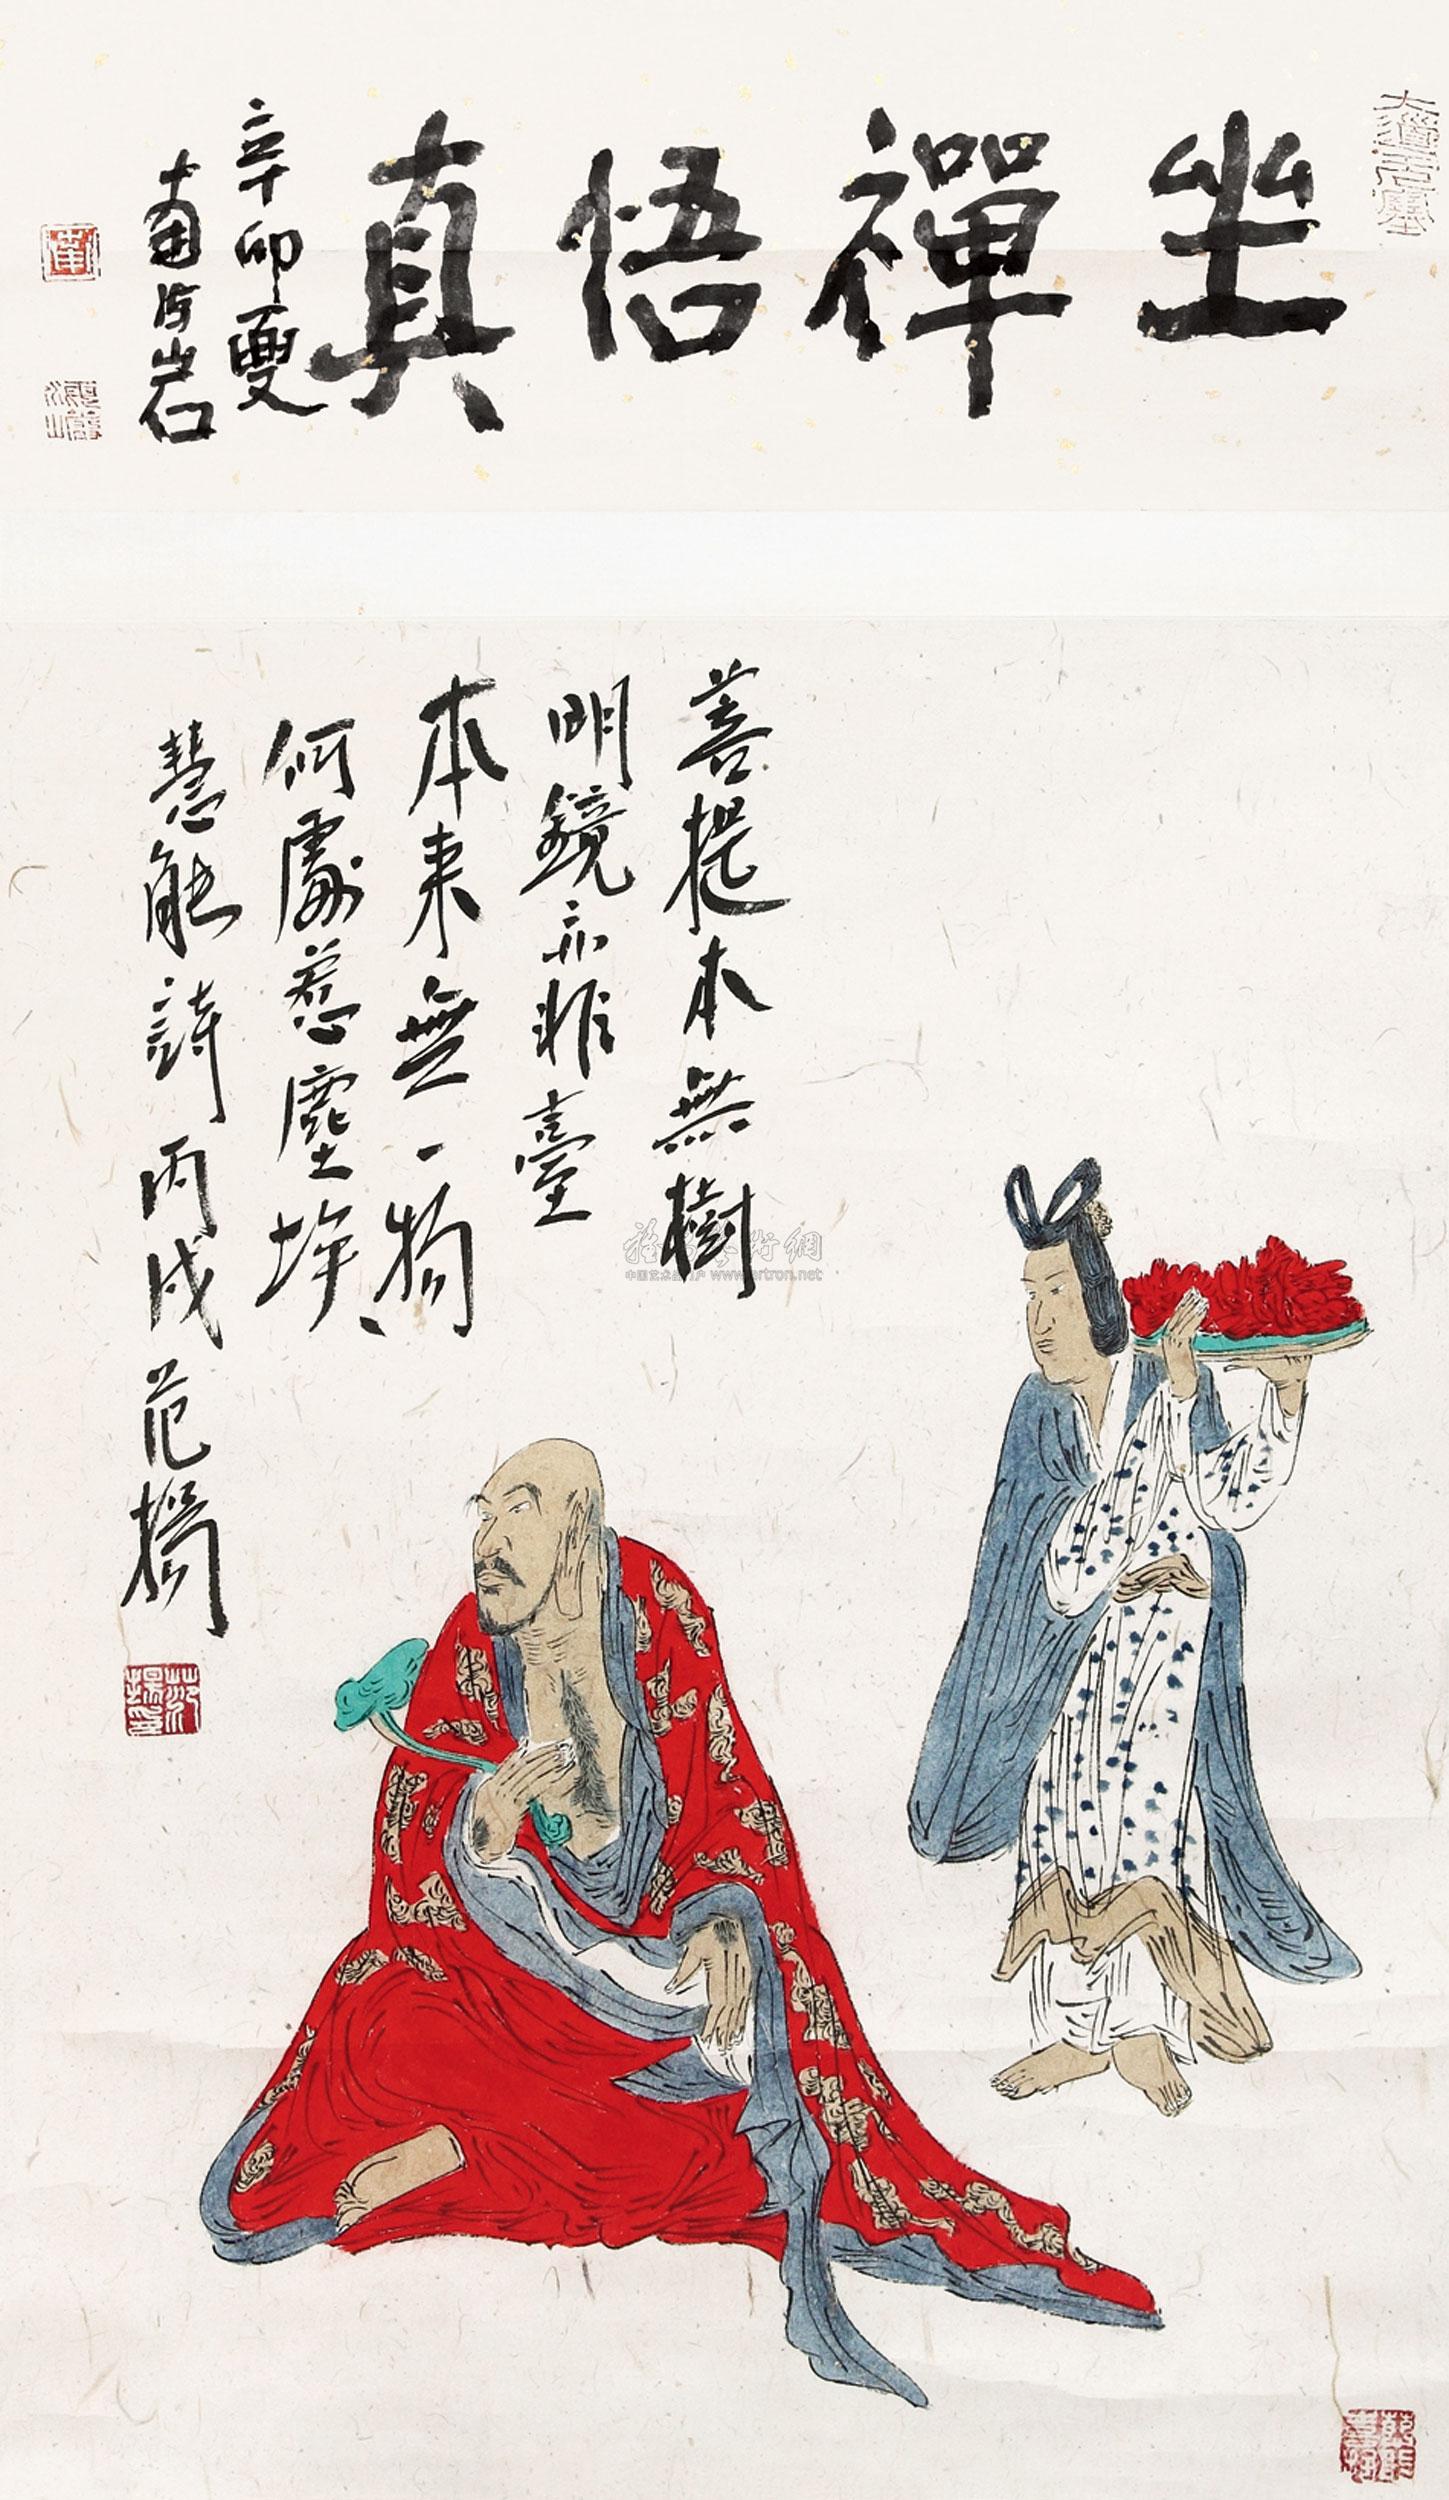 坐禪悟真
辛卯夏
菩提本無樹
明鏡亦非臺
本来無一物
何處惹塵埃
慧能詩丙戌范揚
中国艺术品门户 www.artron.net